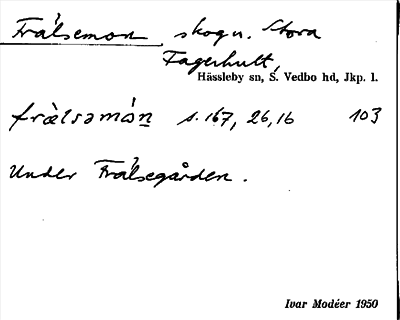 Frälsemon, skogn. Stora
Fagerhult,
Hässleby sn, S. Vedbo hd, Jkp. l.
frälsəmòn s. 167, 26, 16 103
Under Frälsegården.
Ivar Modéer 1950